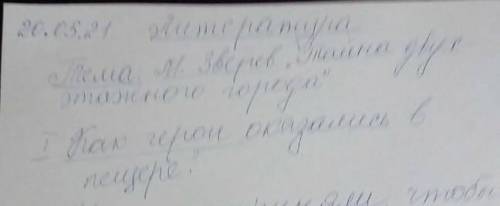 20.05.21 Литература
Тема: М. Зверев „Тайна двух
этажного города"
I Как герои оказались в
пещере?
чтобы